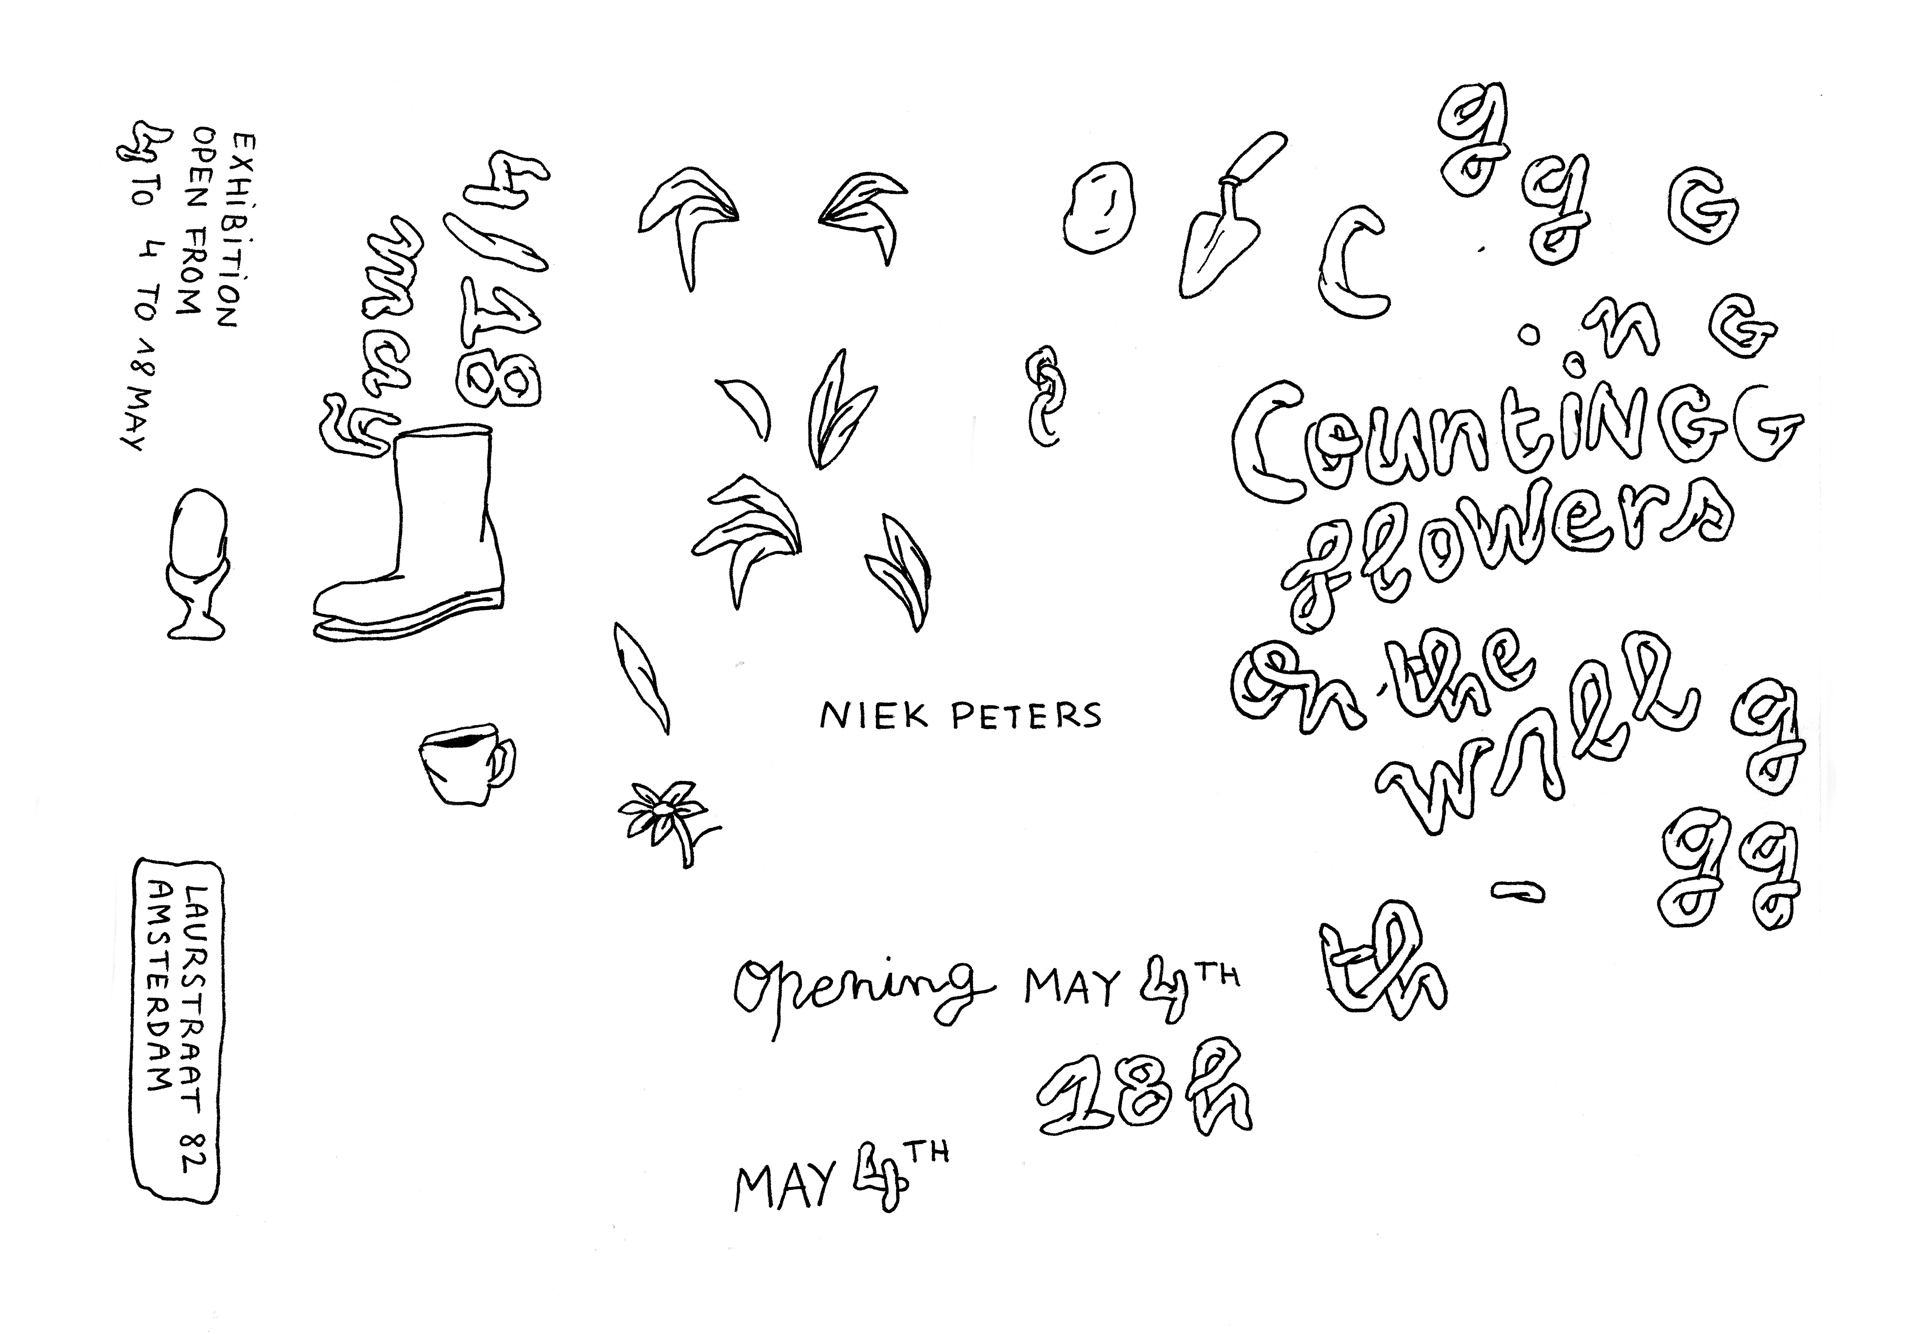 EXHIBITION
OPEN FROM
4 TO 4 TO 18 MAY
4/18
may
LAURSTRAAT 82
AMSTERDAM
NIEK PETERS
g
g G
C
n G
CountiNGG
flowers
on the
wall g
gg
-
th
opening MAY 4TH
18h
MAY 4TH